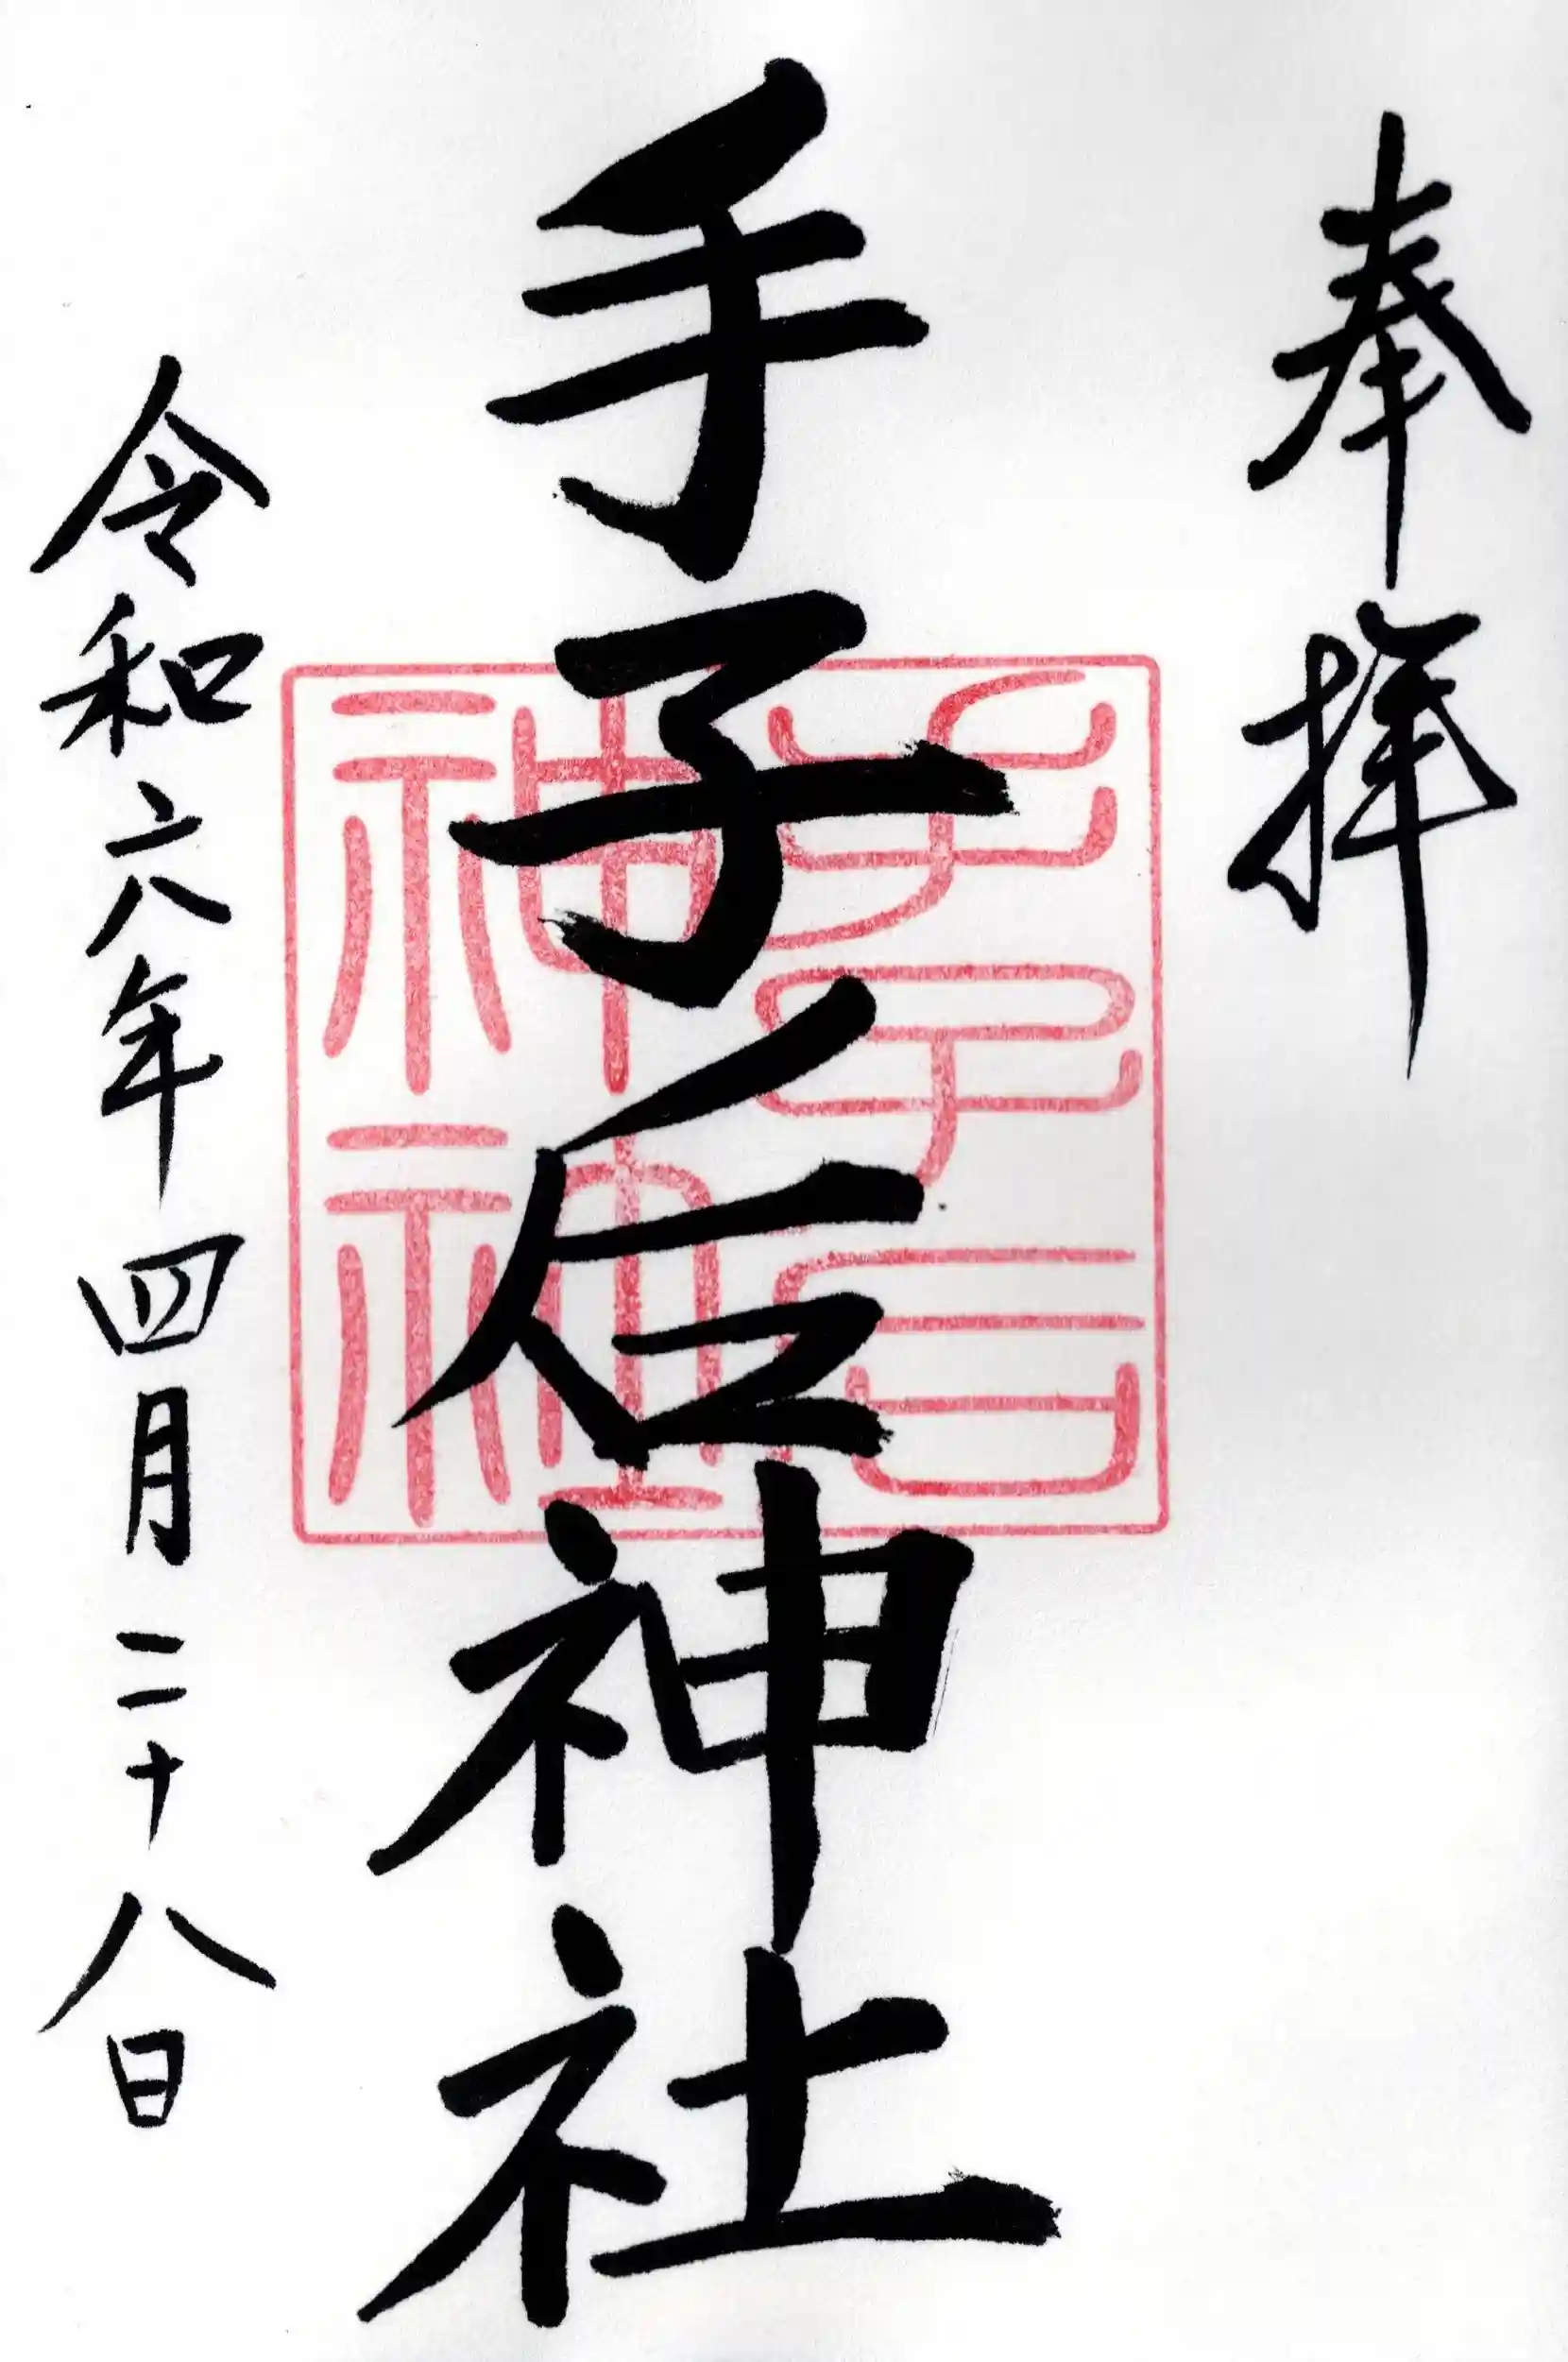 奉拝
手子后神社
令和六年四月二十八日
手子后
神社